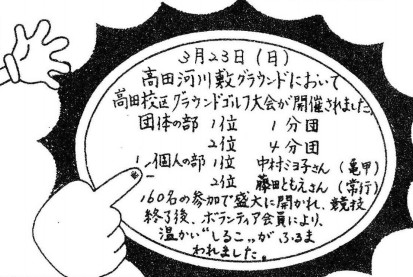 3月23日(日)
高田河川敷グラウンドにおいて
高田校区グラウンドゴルフ大会が開催されました。
団体の部 1位 1分団
2位 4分団
個人の部 1位 中村ミヨ子さん(亀甲)
2位 藤田ともえさん(常行)
160名の参加で盛大に開かれ、競技
終了後、ボランティア会員により、
温かい"しるこ"がふるま
われました。